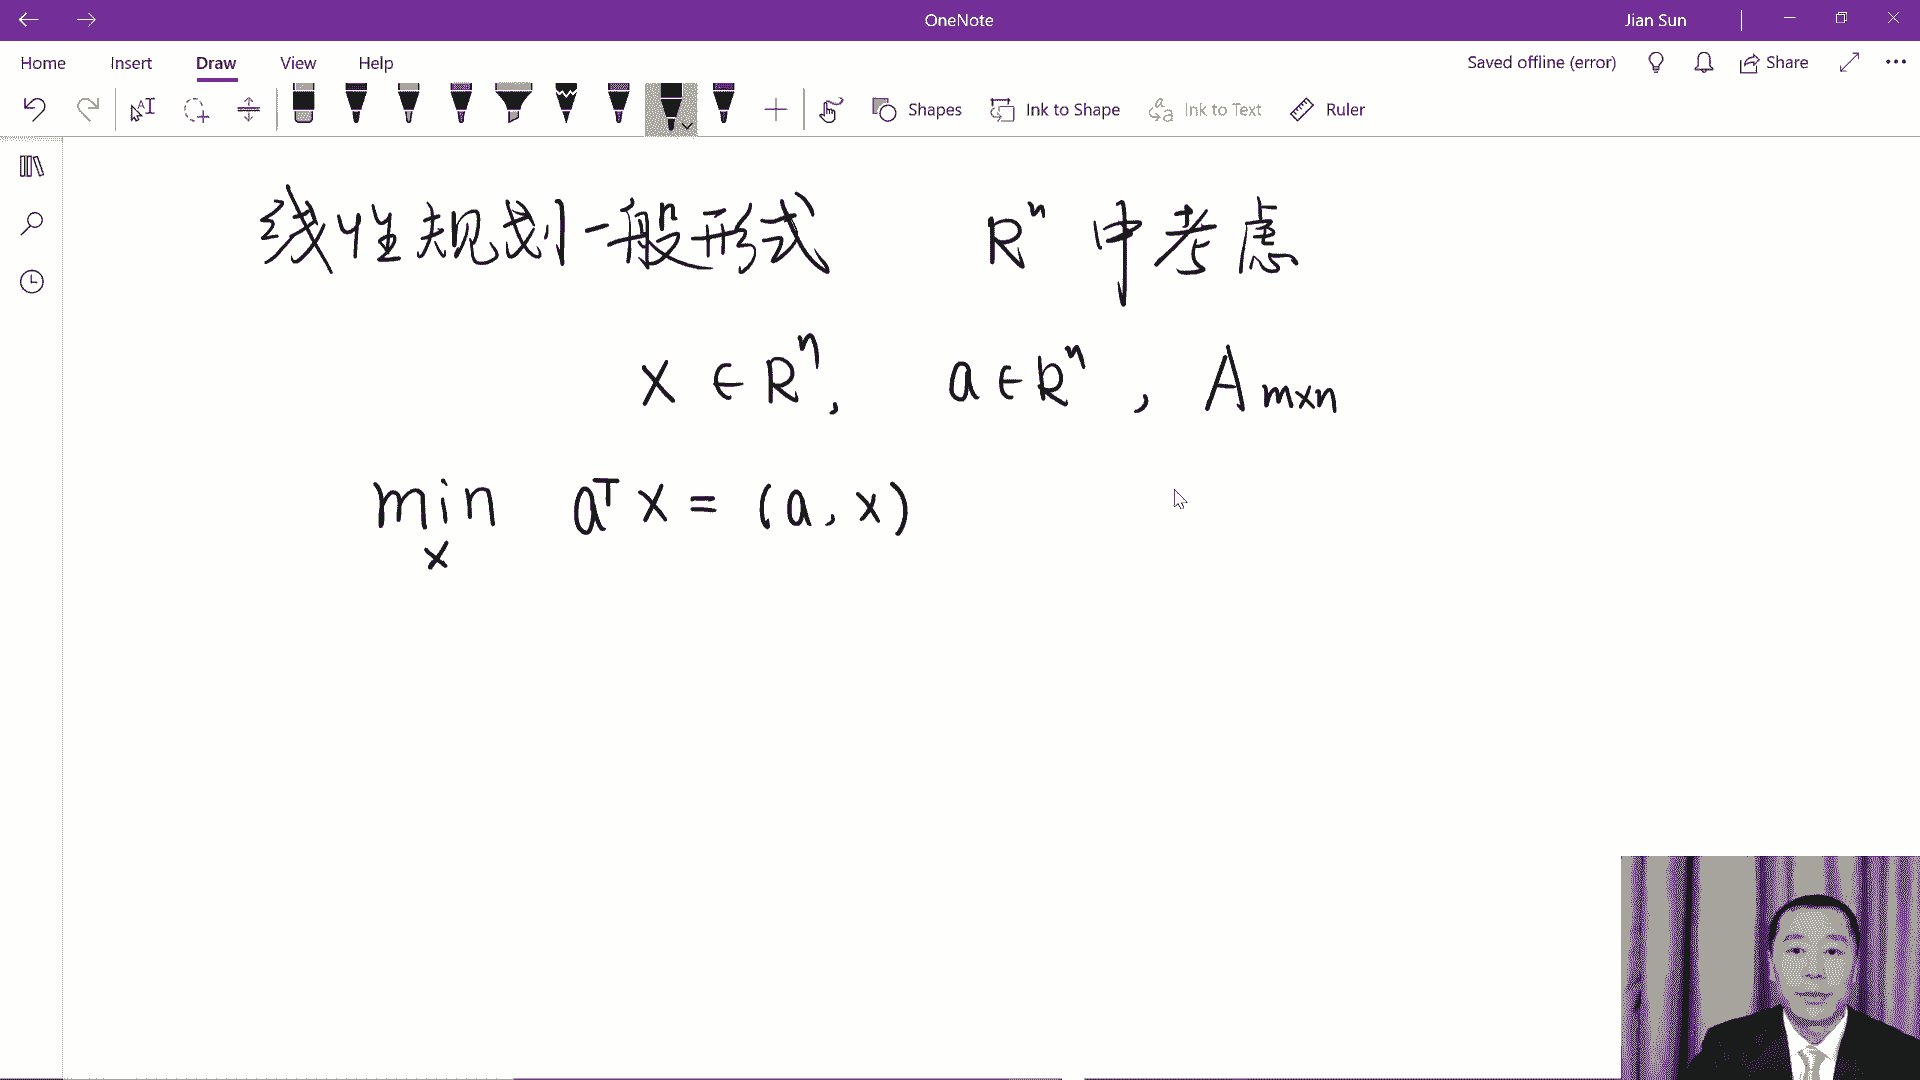 OneNote
Jian Sun
Home Insert Draw View Help
Saved offline (error) Share
Shapes Ink to Shape Ink to Text Ruler
线性规划一般形式 Rⁿ 中考虑
x ∈ Rⁿ, a ∈ Rⁿ, A m×n
min aᵀx = (a, x)
x